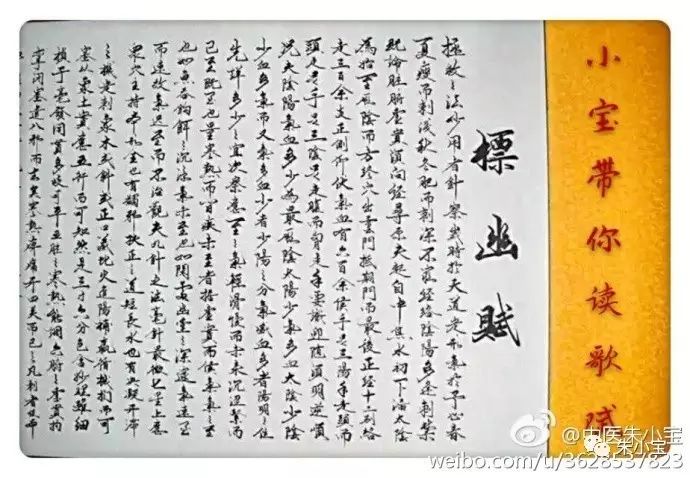 小宝带你读歌赋
標幽賦
拯救之法妙用者針察歲時於天道定形氣於予心春
夏瘦而刺淺秋冬肥而刺深不窮經絡陰陽多逢刺禁
既論脏腑虛實須向經尋原夫起自中焦水初下漏太陰
為始至厥陰而方終穴出雲門抵期門而最後正經十二別絡
走三百余支正側仰伏氣血有六百余候手足三陽手走頭而
頭走足手足三陰足走腹而胸走手要識迎隨須明逆順
況夫陰陽氣血多少為最厥陰太陽少氣多血太陰少陰
少血多氣而又氣多血少者少陽之分氣盛血多者陽明之位
先詳多少之宜次察應至之氣輕滑慢而未來沉澀緊而
已至既至也量寒熱而留疾未至者據虛實而候氣氣之至
也如魚吞鉤餌之沉浮氣未至也如閑處幽堂之深邃氣速至
而速效氣遲至而不治觀夫九針之法毫針最微七星上應
衆穴主持本形金也有蠲邪扶正之道短長水也有決凝開滯
之機定刺象木或斜或正口藏比火進陽補羸循機捫而可
塞以象土實應五行而可知然是三寸六分包含妙理雖細
楨于毫髮同貫多岐可平五脏之寒熱能調六腑之虛實拘
攣閉塞遣八邪而去矣寒熱痹痛開四關而已之凡刺者使本神
@中医朱小宝
朱小宝
weibo.com/u/3628537823